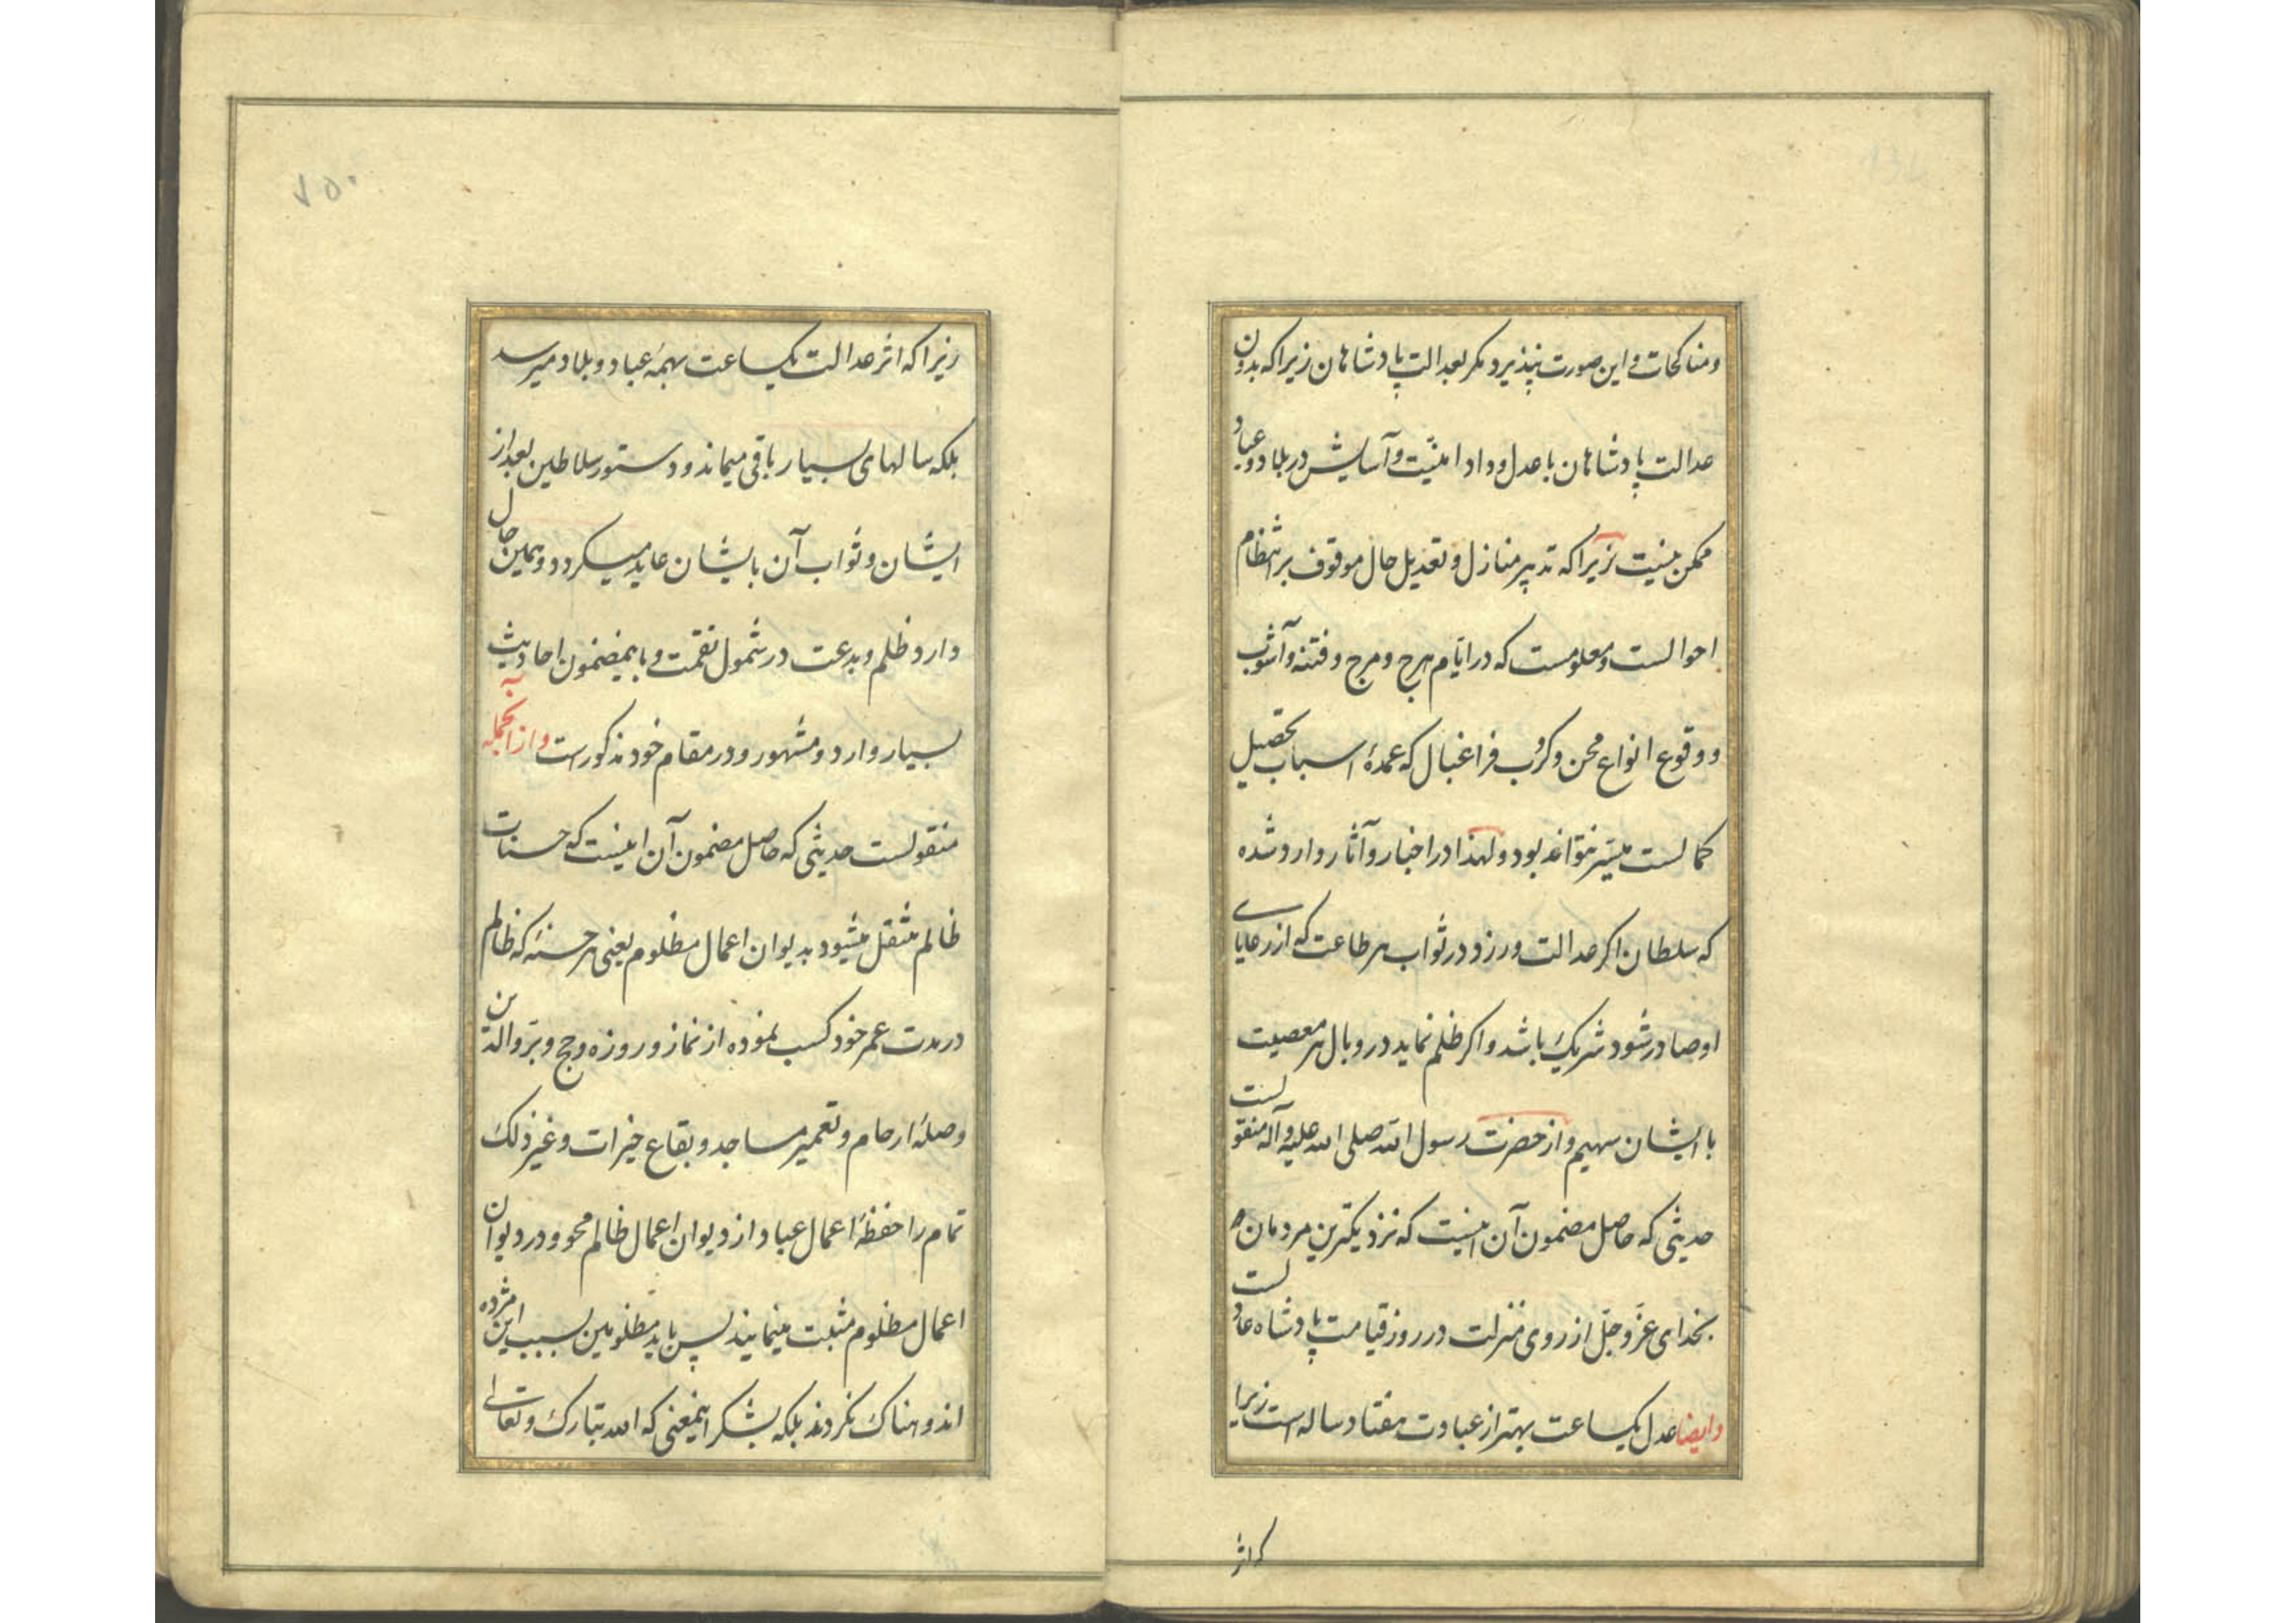 ومناکحات و این صورت نپذیرد مکر بعدالت پادشاهان زیرا که بدون
عدالت پادشاهان با عدل و داد امنیّت و آسایش در بلاد و عباد
ممکن نیست زیرا که تدبیر منازل و تعدیل حال موقوف بر انتظام
احوالست و معلومست که در ایّام هرج و مرج و فتنه و آشوب
و وقوع انواع محن و کروب فراغبال که عمدهٔ اسباب تحصیل
کمالست میسّر نتواند بود و لهذا در اخبار و آثار وارد شده
که سلطان اکر عدالت ورزد در ثواب هر طاعت که از رعایای
او صادر شود شریک باشد و اکر ظلم نماید در وبال هر معصیت
با ایشان سهیم و از حضرت رسول الله صلی الله علیه و آله منقولست
حدیثی که حاصل مضمون آن اینست که نزدیکترین مردمان
بخدای عزّ و جلّ از روی منزلت در روز قیامت پادشاه عادلست
و ایضا عدل یکساعت بهتر از عبادت هفتاد ساله است زیرا
که اثر
۷۵۰
زیرا که اثر عدالت یکساعت بهمهٔ عباد و بلاد میرسد
بلکه سالهای بسیار باقی میماند و دستور سلاطین بعد از
ایشان و ثواب آن بایشان عاید میکردد و همین حال
دارد ظلم و بدعت در شمول نقمت و باینمضمون احادیث
بسیار وارد و مشهور و در مقام خود مذکور است و از آنجمله
منقولست حدیثی که حاصل مضمون آن اینست که حسنات
ظالم منتقل میشود بدیوان اعمال مظلوم یعنی هر حسنهٔ که ظالم
در مدت عمر خود کسب نموده از نماز و روزه و حج و برّ والدین
و صلهٔ ارحام و تعمیر مساجد و بقاع خیرات و غیر ذلک
تمام را حفظهٔ اعمال عباد از دیوان اعمال ظالم محو و در دیوان
اعمال مظلوم مثبت مینمایند پس باید مظلومین بسبب این مژده
اندوهناک نکردند بلکه بشکر اینمعنی که الله تبارک و تعالی